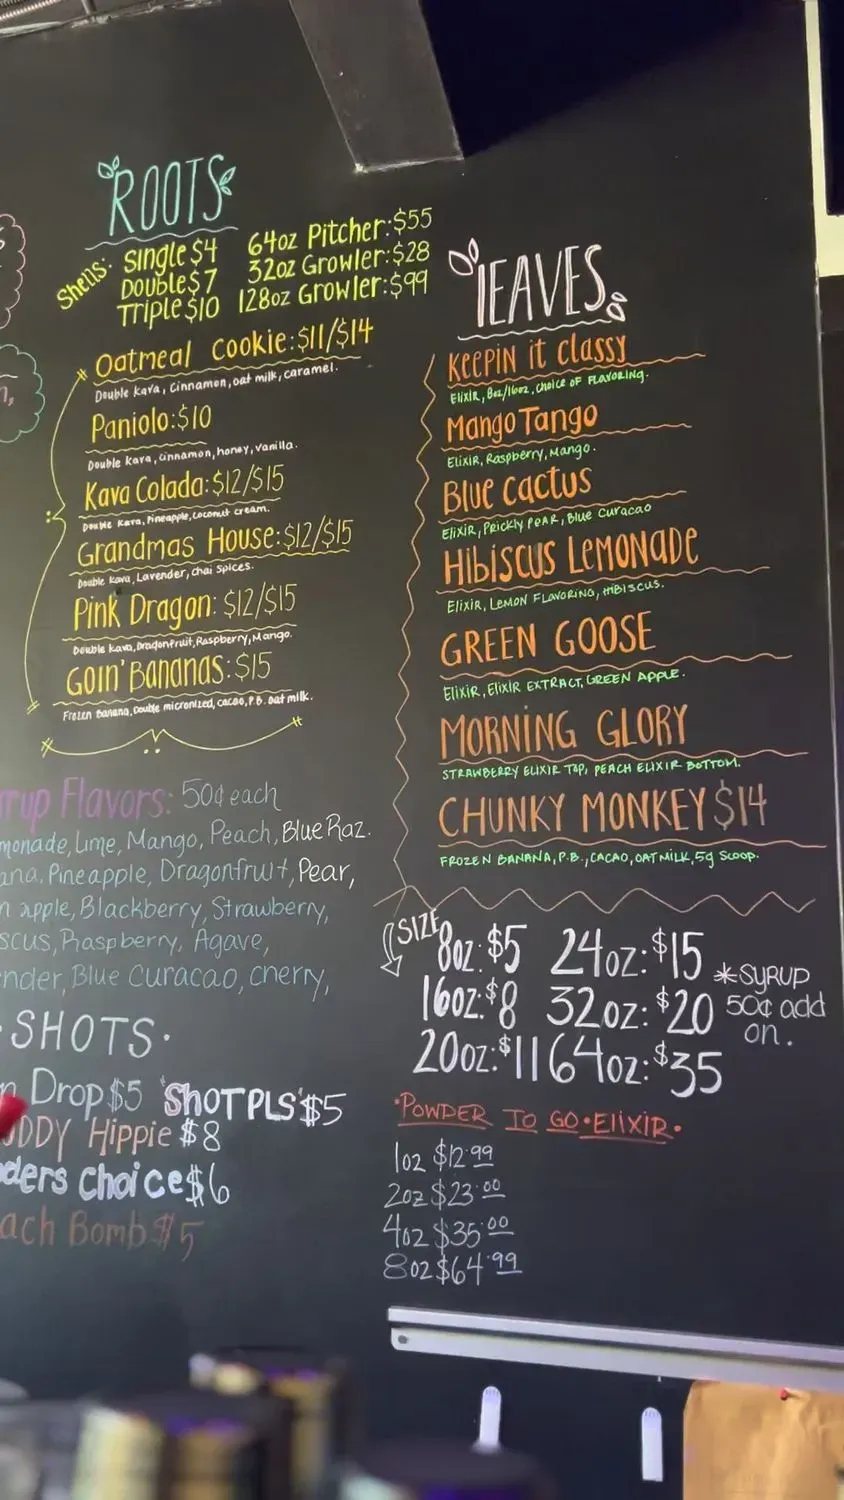 ROOTS
Shells: Single $4
Double $7
Triple $10
64oz Pitcher: $55
32oz Growler: $28
128oz Growler: $99
Oatmeal Cookie: $11/$14
Double Kava, Cinnamon, oat milk, caramel.
Paniolo: $10
Double Kava, cinnamon, honey, vanilla.
Kava Colada: $12/$15
Double Kava, Pineapple, Coconut cream.
Grandmas House: $12/$15
Double Kava, Lavender, chai Spices.
Pink Dragon: $12/$15
Double Kava, Dragonfruit, Raspberry, Mango.
Goin' Bananas: $15
Frozen Banana, Double micronized, cacao, P.B. oat milk.
rup Flavors: 50¢ each
monade, Lime, Mango, Peach, Blue Raz.
ana, Pineapple, Dragonfruit, Pear,
n apple, Blackberry, Strawberry,
scus, Raspberry, Agave,
nder, Blue Curacao, cherry,
·SHOTS·
n Drop $5 'SHOT PLS' $5
DDY Hippie $8
ders Choice $6
ach Bomb $5
LEAVES
Keepin it Classy
Elixir, 8oz/16oz, choice of flavoring.
Mango Tango
Elixir, Raspberry, Mango.
Blue Cactus
Elixir, Prickly Pear, Blue Curacao
Hibiscus Lemonade
Elixir, Lemon Flavoring, Hibiscus.
GREEN GOOSE
ELIXIR, ELIXIR EXTRACT, GREEN APPLE.
MORNING GLORY
STRAWBERRY ELIXIR TOP, PEACH ELIXIR BOTTOM.
CHUNKY MONKEY $14
FROZEN BANANA, P.B., CACAO, OAT MILK, 5g SCOOP.
SIZE
8oz: $5 24oz: $15
16oz: $8 32oz: $20
20oz: $11 64oz: $35
*SYRUP
50¢ add
on.
·POWDER TO GO·ELIXIR·
1oz $12.99
2oz $23.00
4oz $35.00
8oz $64.99